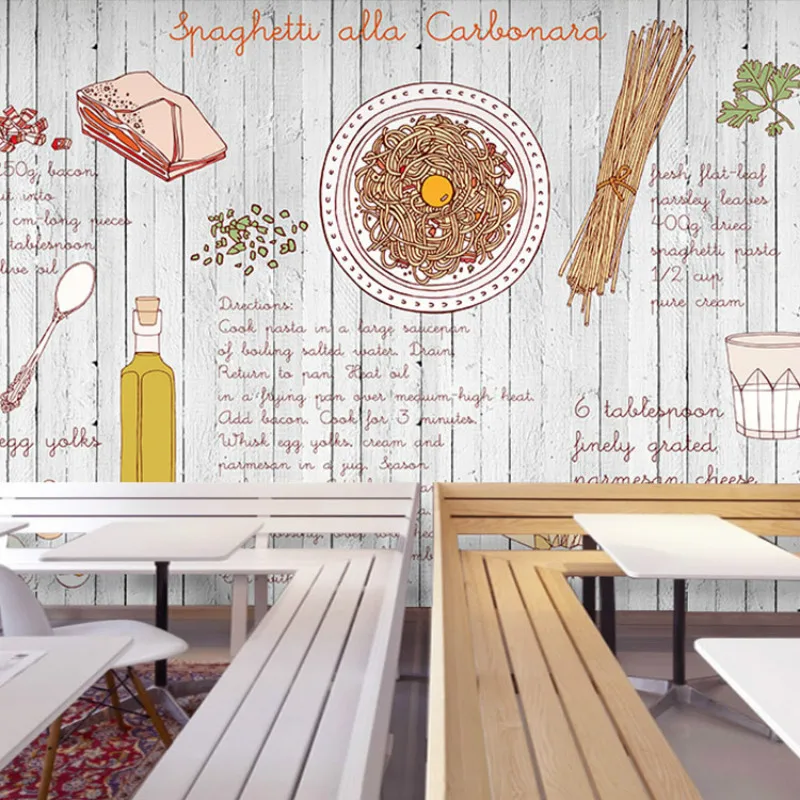 Spaghetti alla Carbonara
250g bacon,
cut into
cm-long pieces
tablespoon
olive oil
egg yolks
Directions:
Cook pasta in a large saucepan
of boiling salted water. Drain.
Return to pan. Heat oil
in a frying pan over medium-high heat.
Add bacon. Cook for 3 minutes.
Whisk egg, yolks, cream and
parmesan in a jug. Season
fresh flat-leaf
parsley leaves
400g dried
spaghetti pasta
1/2 cup
pure cream
6 tablespoon
finely grated
parmesan cheese